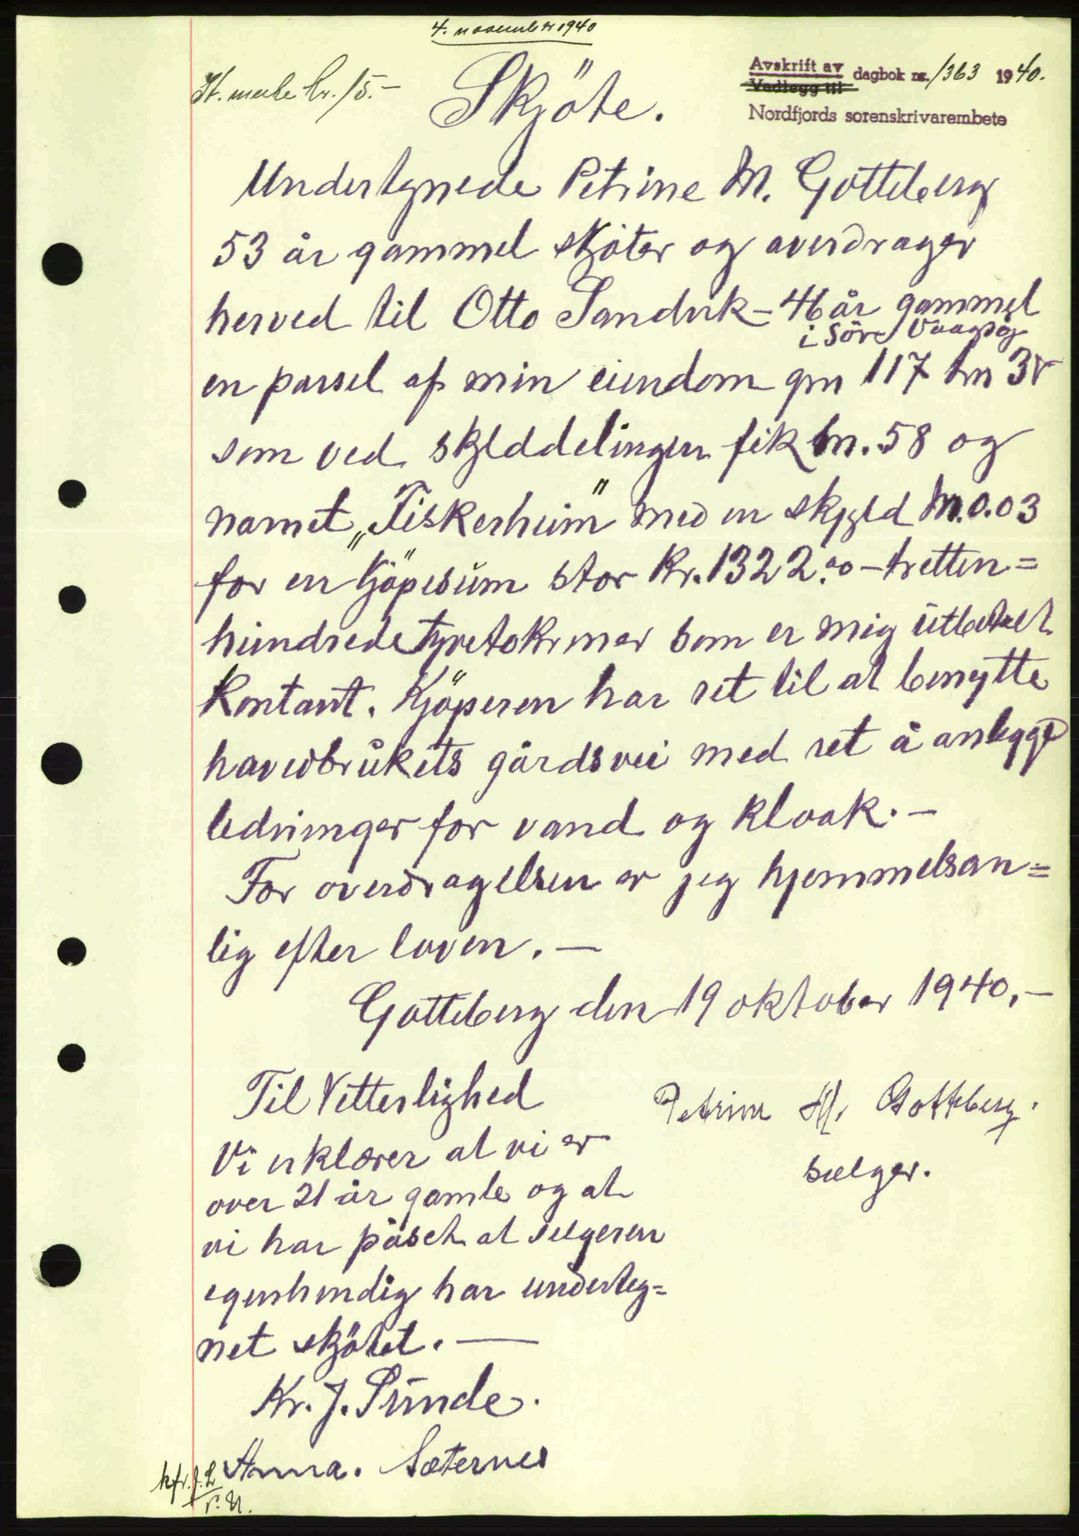 4. november 1940
St. merke kr. 15.-
Avskrift av
Vedlegg til
dagbok nr. 1363 1940.
Nordfjords sorenskrivarembete
Skjöte.
Undertegnede Petrine M. Gotteberg
53 år gammel skjöter og averdrager
herved til Otto Sandvik – 46 år gammel
i Söre Vaagsøy
en parsel af min eiendom gm 117 bn 38
som ved skylddelingen fik bn. 58 og
namet „Fiskerheim" med en skyld M.0.03
for en kjöpesum stor kr. 1322.00 – tretten=
hundredetyvetokroner som er mig utbetalt
kontant. Kjöperen har ret til at benytte
havedbrukets gårdsvei med ret å anlegge
ledninger for vand og kloak. –
For overdragelsen er jeg hjemmelsan=
lig efter loven. –
Gotteberg den 19 oktober 1940. –
Til Vitterlighed
Petrine M. Gotteberg.
selger.
Vi erklærer at vi er
over 21 år gamle og at
vi har påset at selgeren
egenhendig har underteg=
net skjötet. –
Kr. J. Sunde.
Anna. Sæternes